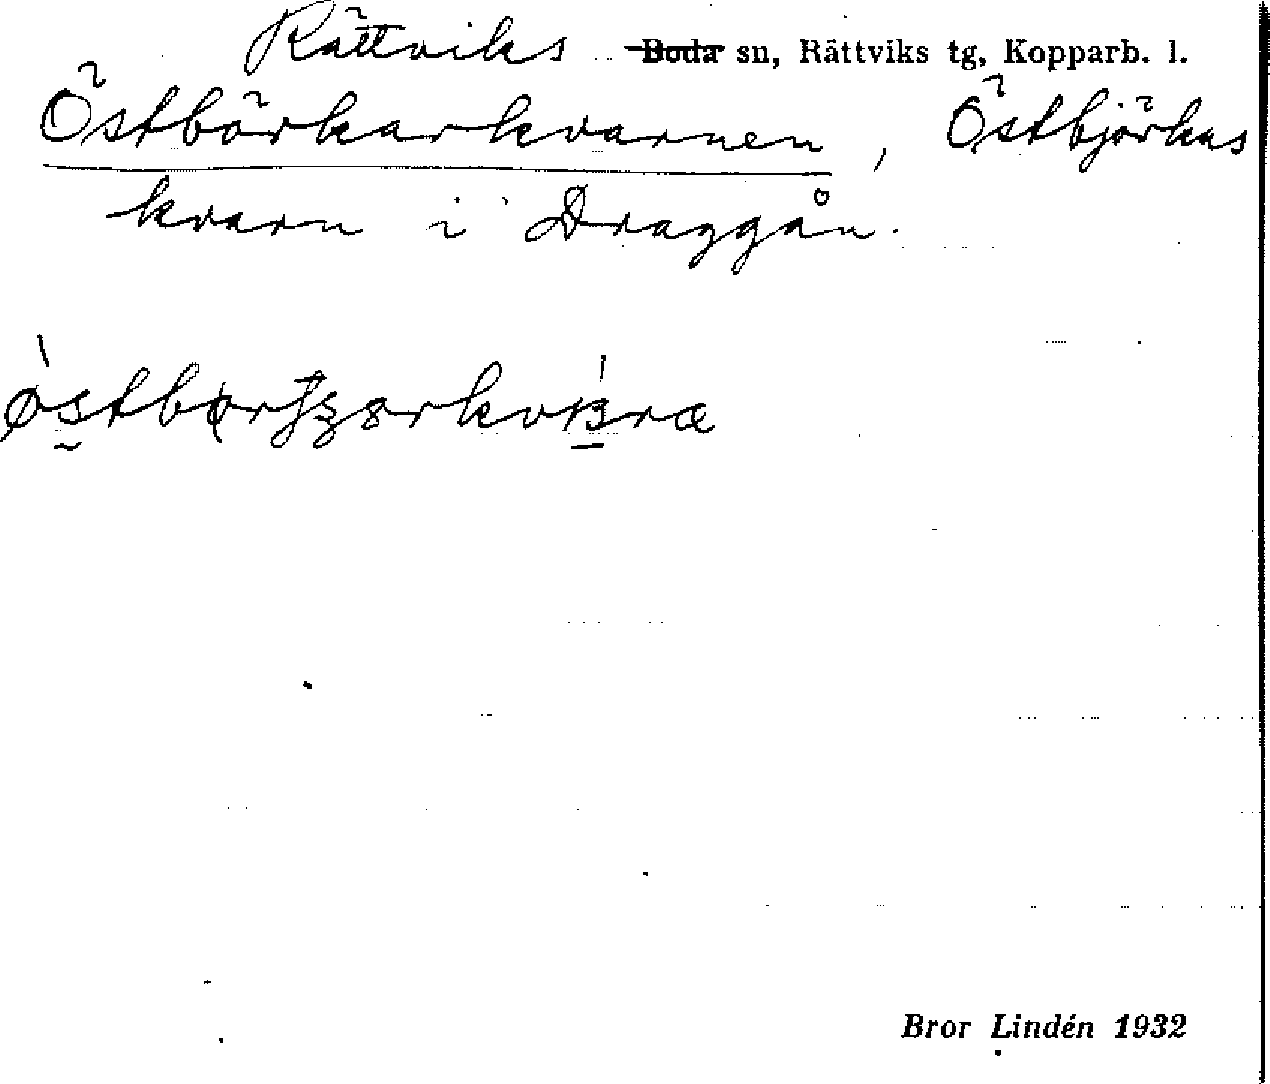 Rättviks Boda sn, Rättviks tg, Kopparb. l.
Östbörkarkvarnen, Östbjörkas
kvarn i Draggån.
Bror Lindén 1932